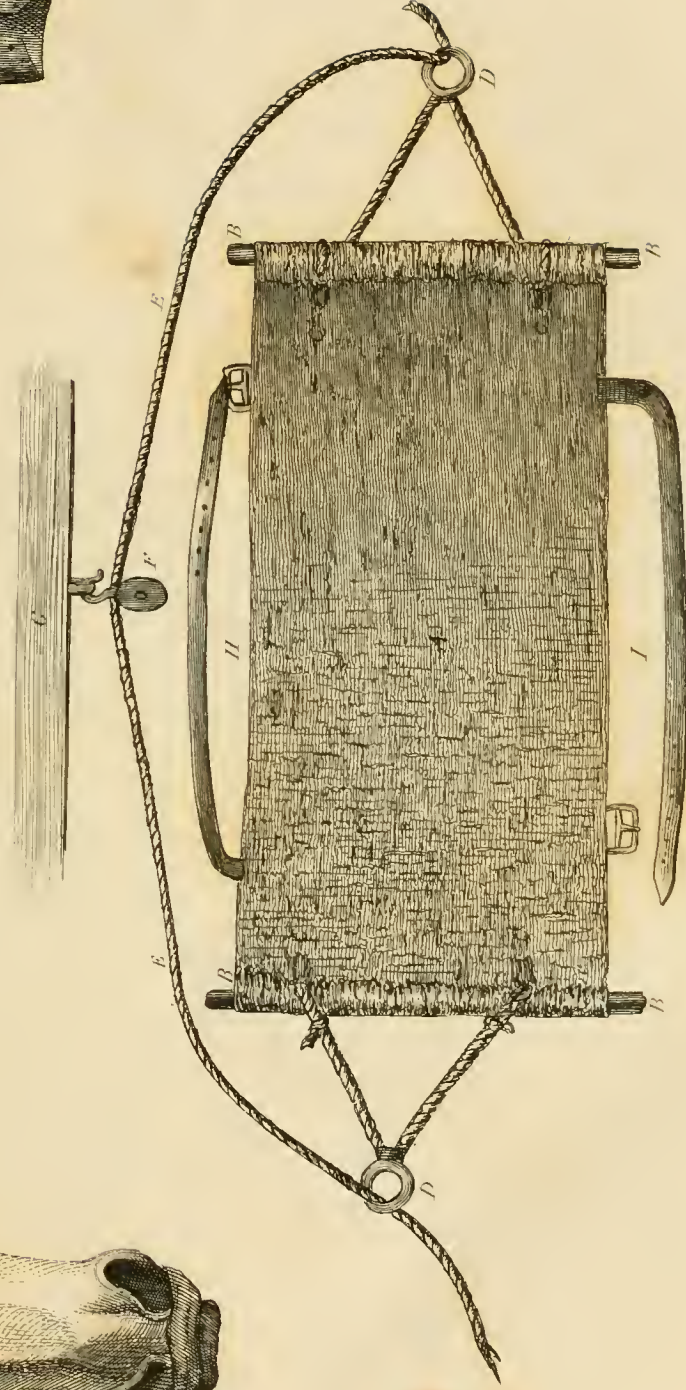 D
B
B
E
F
G
H
I
E
B
B
D